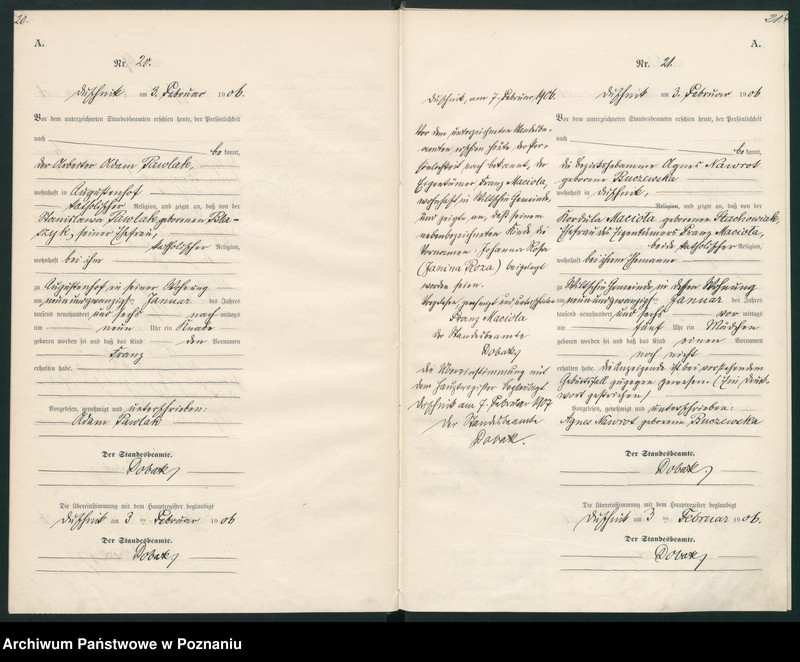 20.
A.
Nr. 20.
Duschnik am 3. Februar 1906.
Vor dem unterzeichneten Standesbeamten erschien heute, der Persönlichkeit
nach
bekannt,
der Arbeiter Adam Pawlak,
wohnhaft in Augustenhof
katholischer Religion, und zeigte an, daß von der
Stanislawa Pawlak geborenen Bła-
szyk, seiner Ehefrau,
katholischer Religion,
wohnhaft bei ihm
zu Augustenhof in seiner Wohnung
am neunundzwanzigsten Januar des Jahres
tausend neunhundert und sechs nach mittags
um neun Uhr ein Knabe
geboren worden sei und daß das Kind den Vornamen
Franz
erhalten habe.
Vorgelesen, genehmigt und unterschrieben:
Adam Pawlak
Der Standesbeamte.
Dobak
Die Übereinstimmung mit dem Hauptregister beglaubigt
Duschnik am 3ten Februar 1906
Der Standesbeamte.
Dobak
A.
Nr. 21.
Duschnik am 3. Februar 1906
Vor dem unterzeichneten Standesbeamten erschien heute, der Persönlichkeit
nach
bekannt,
die Bezirkshebamme Agnes Nawrot
geborene Buczewska
wohnhaft in Duschnik,
Religion, und zeigte an, daß von der
Kordula Maciola geborenen Stachowiak,
Ehefrau des Eigentümers Franz Maciola,
beide katholischer Religion,
wohnhaft bei ihrem Ehemann
zu Wilkschin Gemeinde in dessen Wohnung
am neunundzwanzigsten Januar des Jahres
tausend neunhundert und sechs vor mittags
um fünf Uhr ein Mädchen
geboren worden sei und daß das Kind einen Vornamen
noch nicht
erhalten habe. Die Anzeigende ist bei vorstehendem
Geburtsfall zugegen gewesen. (Ein Druck-
wort gestrichen)
Vorgelesen, genehmigt und unterschrieben:
Agnes Nawrot geborene Buczewska
Der Standesbeamte.
Dobak
Die Übereinstimmung mit dem Hauptregister beglaubigt
Duschnik am 3ten Februar 1906.
Der Standesbeamte.
Dobak
Duschnik, am 7. Februar 1906.
Vor dem unterzeichneten Standesbe-
amten erschien heute, der Per-
sönlichkeit nach bekannt, der
Eigentümer Franz Maciola,
wohnhaft in Wilkschin Gemeinde,
und zeigte an, daß seinem
nebenbezeichneten Kinde die
Vornamen Johanna Rosa
(Janina Roza) beigelegt
worden seien.
Vorgelesen, genehmigt und unterschrieben
Franz Maciola
der Standesbeamte
Dobak
Die Übereinstimmung mit
dem Hauptregister beglaubigt
Duschnik am 7. Februar 1907
Der Standesbeamte
Dobak.
Archiwum Państwowe w Poznaniu